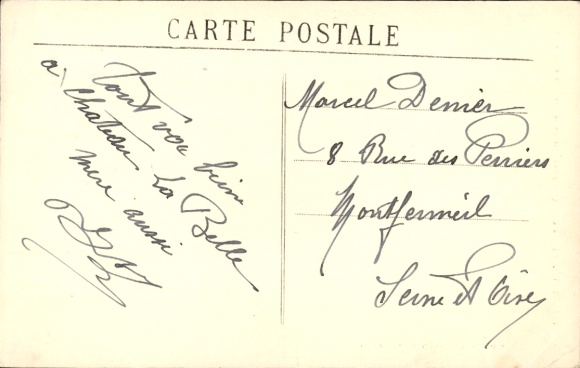 CARTE POSTALE
tout va bien
a Chateau La Belle
mere aussi
Marcel Denier
8 Rue des Perriers
Montfermeil
Seine et Oise